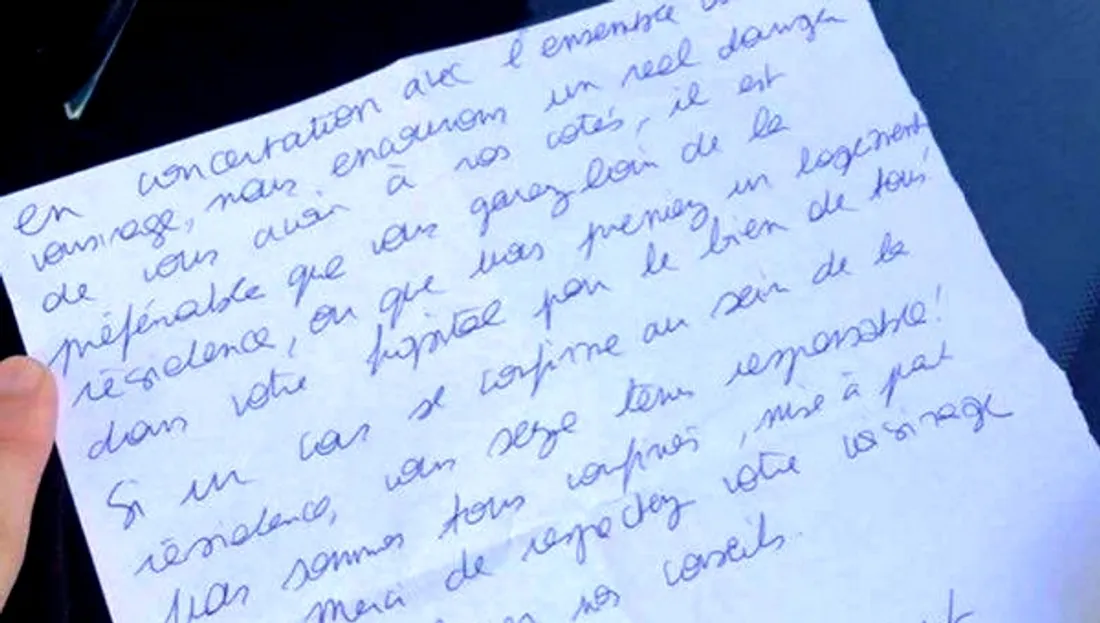 en concertation avec l'ensemble
voisinage, nous encourons un reel danger
de vous avoir à nos cotés, il est
préférable que vous garez loin de la
résidence, ou que vous preniez un logement
dans votre hopital pour le bien de tous
Si un cas se confirme au sein de la
résidence, vous serze tenu responsable!
Nous sommes tous confinés, mise à part
Merci de respectez votre voisinage
nos conseils.